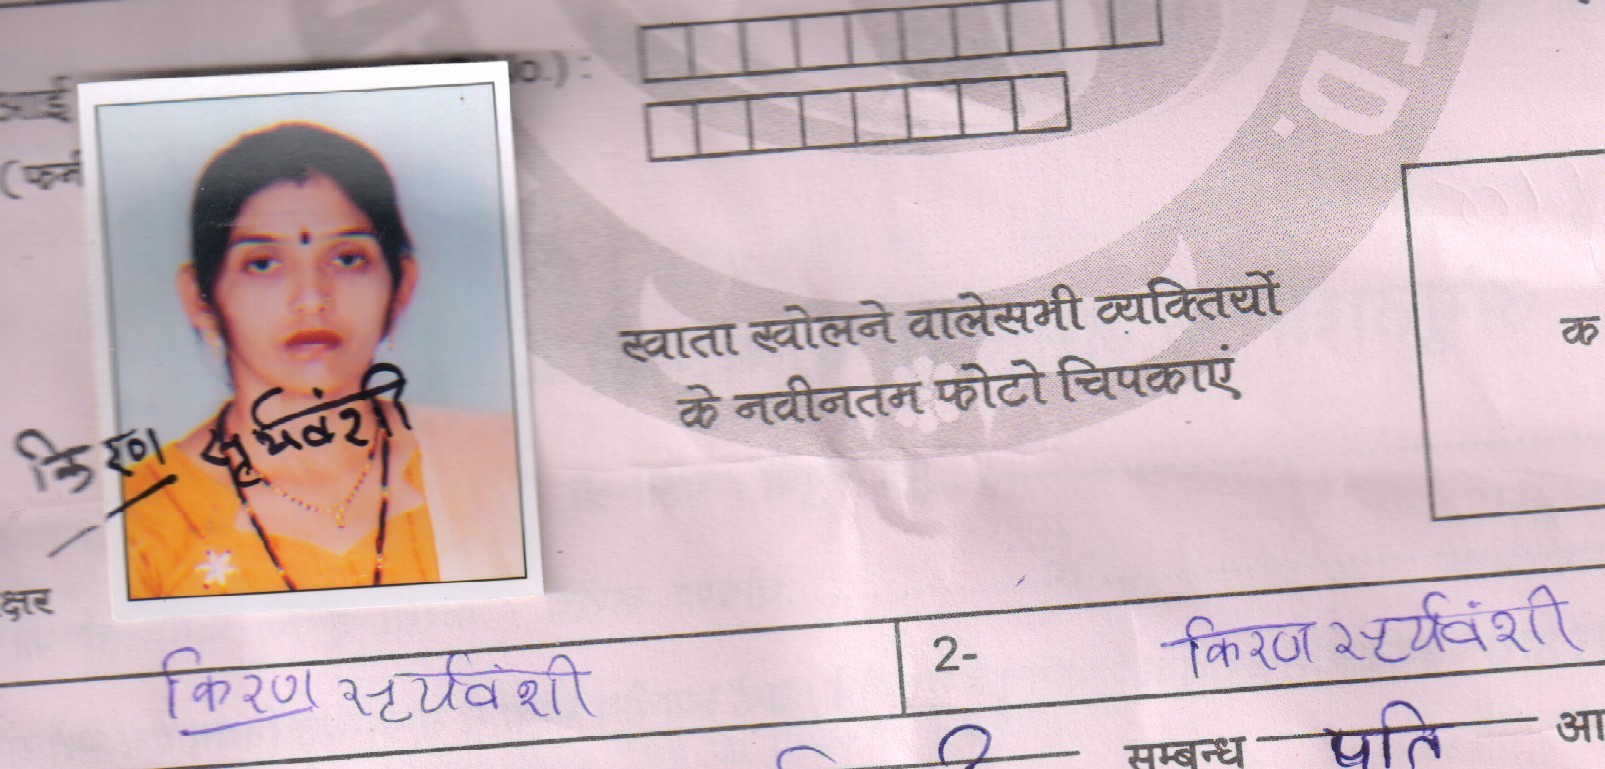 आई o.) :
(फर्म
TD.
खाता खोलने वालेसभी व्यक्तियों
के नवीनतम फोटो चिपकाएं
क
किरण सूर्यवंशी
क्षर
किरण सूर्यवंशी 2- किरण सूर्यवंशी
सम्बन्ध पति आ